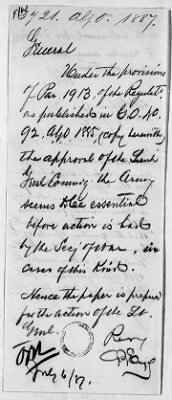 721. A.G.O. 1887.
General
Under the provisions
of Par 1913, of the Regulats,
as published in G.O. No.
92, A.G.O 1885, (copy herewith)
the approval of the Lieut
Genl Comdg the Army
seems to be essential
before action is had
by the Sec'y of War, in
cases of this kind.
Hence the paper is prepared
for the action of the Lt.
Genl.
Resp
July 6/87.